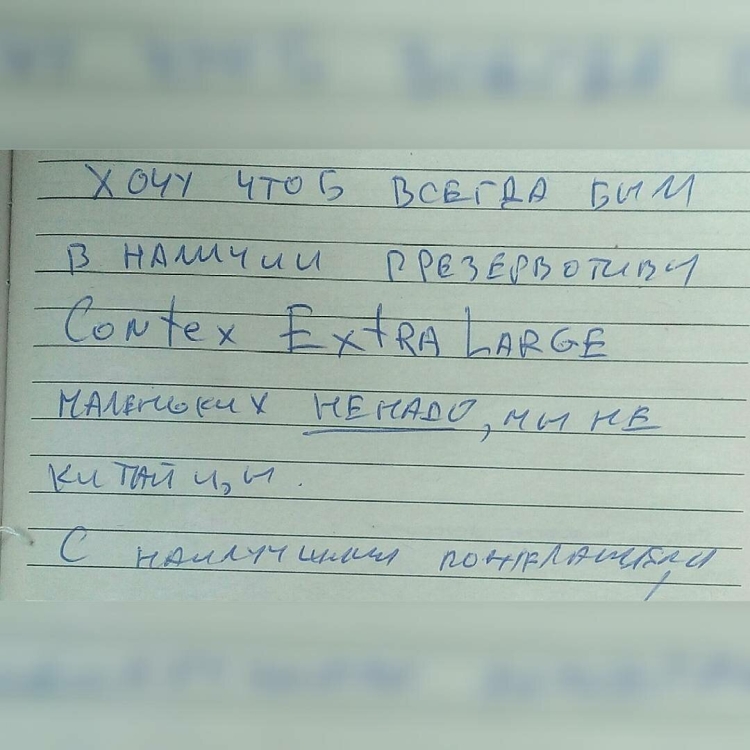 ХОЧУ ЧТОБ ВСЕГДА БЫЛИ
В НАЛИЧИИ ПРЕЗЕРВОТИВЫ
Contex Extra Large
МАЛЕНЬКИХ НЕНАДО, МЫ НЕ
КИТАЙЦЫ.
С НАИЛУЧШИМИ ПОЖЕЛАНИЯМИ